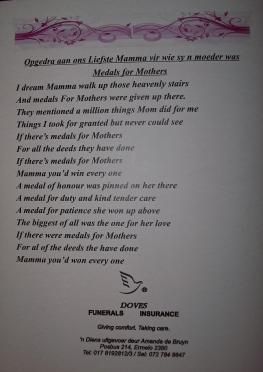 Opgedra aan ons Liefste Mamma vir wie sy n moeder was
Medals for Mothers
I dream Mamma walk up those heavenly stairs
And medals For Mothers were given up there.
They mentioned a million things Mom did for me
Things I took for granted but never could see
If there's medals for Mothers
For all the deeds they have done
If there's medals for Mothers
Mamma you'd win every one
A medal of honour was pinned on her there
A medal for duty and kind tender care
A medal for patience she won up above
The biggest of all was the one for her love
If there were medals for Mothers
For al of the deeds the have done
Mamma you'd won every one
®
DOVES
FUNERALS INSURANCE
Giving comfort. Taking care.
'n Diens uitgevoer deur Amanda de Bruyn
Posbus 214, Ermelo 2350
Tel: 017 8192812/3 / Sel: 072 784 8647